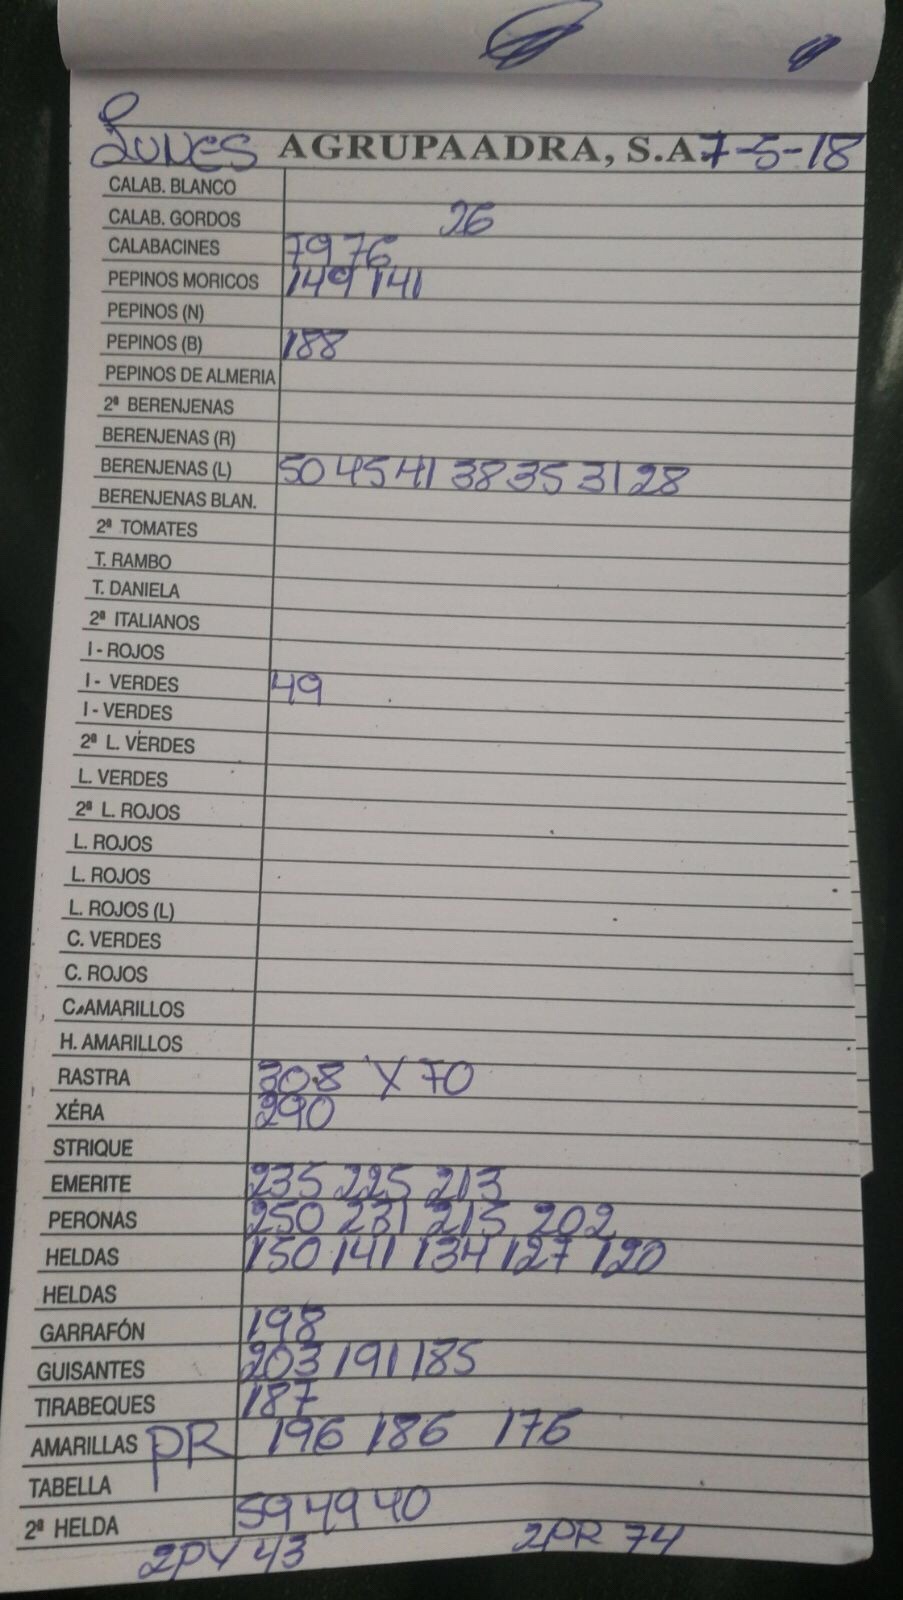 LUNES AGRUPAADRA, S.A. 7-5-18
CALAB. BLANCO
CALAB. GORDOS 26
CALABACINES 79 76
PEPINOS MORICOS 149 141
PEPINOS (N)
PEPINOS (B) 188
PEPINOS DE ALMERIA
2ª BERENJENAS
BERENJENAS (R)
BERENJENAS (L) 50 45 41 38 35 31 28
BERENJENAS BLAN.
2ª TOMATES
T. RAMBO
T. DANIELA
2ª ITALIANOS
I - ROJOS
I - VERDES 49
I - VERDES
2ª L. VERDES
L. VERDES
2ª L. ROJOS
L. ROJOS
L. ROJOS
L. ROJOS (L)
C. VERDES
C. ROJOS
C. AMARILLOS
H. AMARILLOS
RASTRA 308 X 70
XÉRA 290
STRIQUE
EMERITE 235 225 213
PERONAS 250 231 215 202
HELDAS 150 141 134 127 120
HELDAS
GARRAFÓN 198
GUISANTES 203 191 185
TIRABEQUES 187
AMARILLAS PR 196 186 176
TABELLA
2ª HELDA 59 49 40
2PY 43 2PR 74